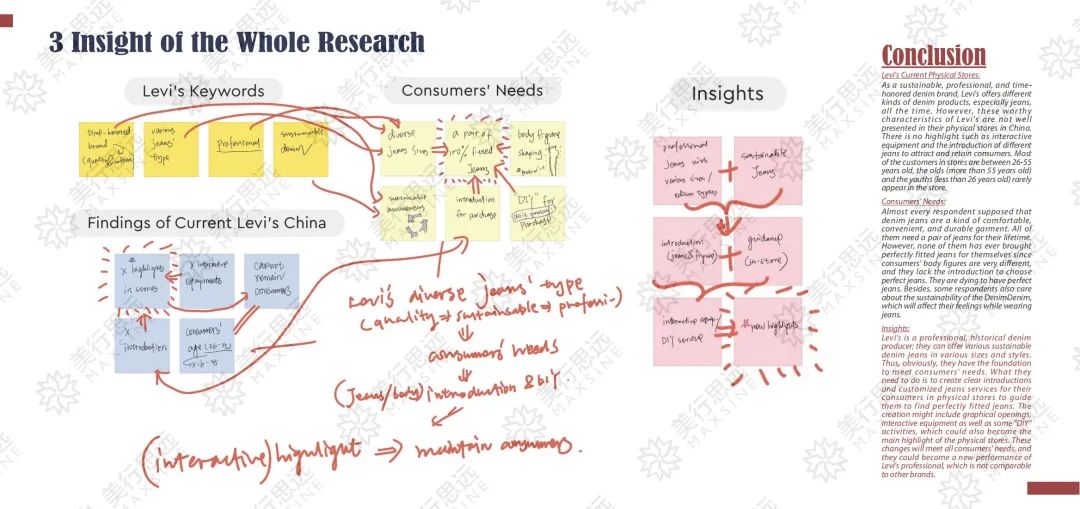 3 Insight of the Whole Research
Levi's Keywords
time-honored
brand
various
jeans'
type
professional
sustainable
denim
Consumers' Needs
diverse
jeans sizes
a pair of
100% fitted
jeans
body figure
shaping
sustainable
introduction
for purchase
"DIY" for
purchase
Findings of Current Levi's China
X highlights
in stores
X interactive
equipments
cannot
remain
consumers
X
introduction
consumers'
age
Levi's diverse jeans' type
(quality => sustainable => profession)
consumers' needs
(jeans/body) introduction & DIY
(interactive) highlight => maintain consumers.
Insights
professional
jeans with
various sizes/
types
+
sustainable
jeans
introduction
(jeans & figure)
+
guidance
(in-store)
interactive equip.
DIY service
=
new highlights
Conclusion
Levi's Current Physical Stores:
As a sustainable, professional, and time-
honored denim brand, Levi's offers different
kinds of denim products, especially jeans,
all the time. However, these worthy
characteristics of Levi's are not well
presented in their physical stores in China.
There is no highlight such as interactive
equipment and the introduction of different
jeans to attract and retain consumers. Most
of the customers in stores are between 26-55
years old, the olds (more than 55 years old)
and the youths (less than 26 years old) rarely
appear in the store.
Consumers' Needs:
Almost every respondent supposed that
denim jeans are a kind of comfortable,
convenient, and durable garment. All of
them need a pair of jeans for their lifetime.
However, none of them has ever brought
perfectly fitted jeans for themselves since
consumers' body figures are very different,
and they lack the introduction to choose
perfect jeans. They are dying to have perfect
jeans. Besides, some respondents also care
about the sustainability of the DenimDenim,
which will affect their feelings while wearing
jeans.
Insights:
Levi's is a professional, historical denim
producer; they can offer various sustainable
denim jeans in various sizes and styles.
Thus, obviously, they have the foundation
to meet consumers' needs. What they
need to do is to create clear introductions
and customized jeans services for their
consumers in physical stores to guide
them to find perfectly fitted jeans. The
creation might include graphical openings,
Interactive equipment as well as some "DIY"
activities, which could also become the
main highlight of the physical stores. These
changes will meet all consumers' needs, and
they could become a new performance of
Levi's professional, which is not comparable
to other brands.
美行思远
MAXSINE